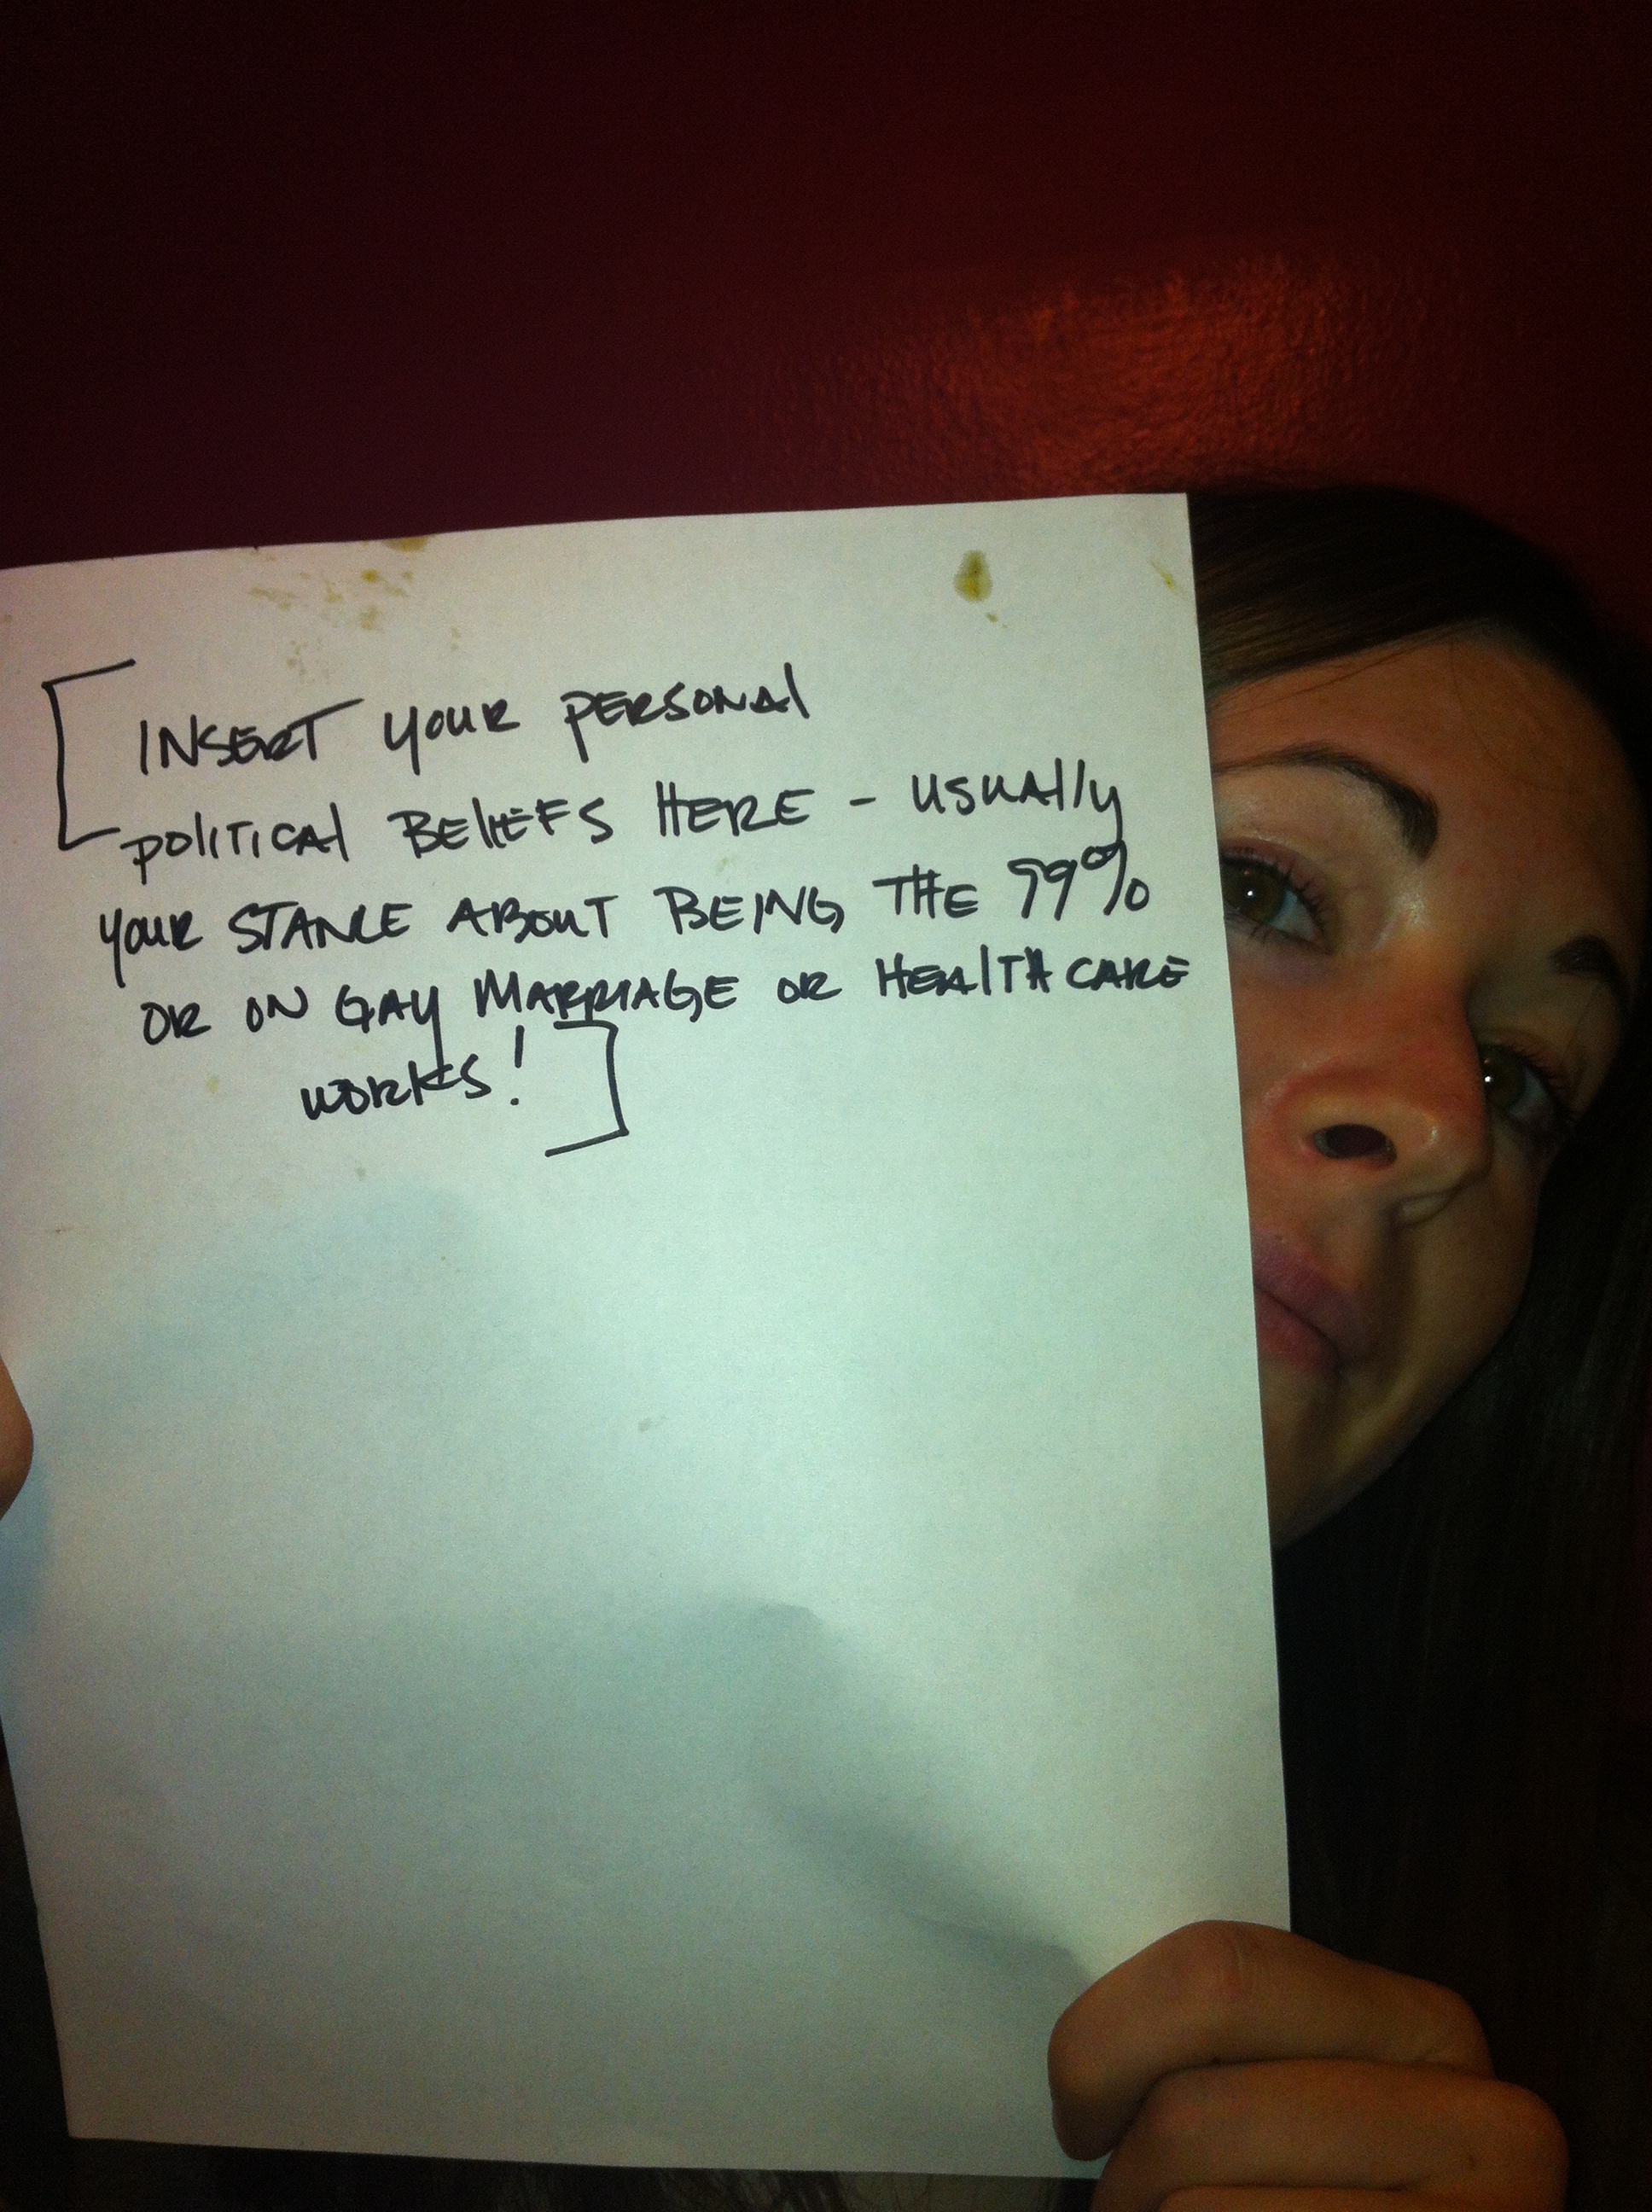 [INSERT YOUR PERSONAL
POLITICAL BELIEFS HERE - USUALLY
YOUR STANCE ABOUT BEING THE 99%
OR ON GAY MARRIAGE OR HEALTH CARE
WORKS!]